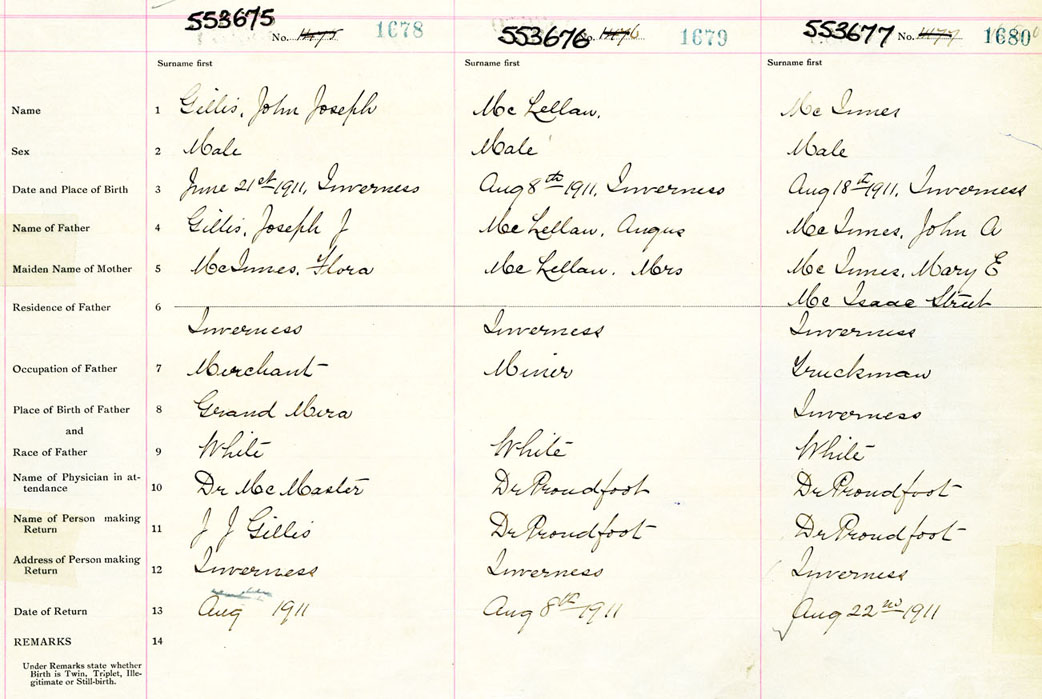 553675 No. 1678 553676 No. 1679 553677 No. 1680
Surname first Surname first Surname first
Name 1 Gillis, John Joseph Mc Lellan, Mc Innes
Sex 2 Male Male Male
Date and Place of Birth 3 June 21st 1911, Inverness Aug 8th 1911, Inverness Aug 18th 1911, Inverness
Name of Father 4 Gillis, Joseph J Mc Lellan, Angus Mc Innes, John A
Maiden Name of Mother 5 McInnes, Flora Mc Lellan, Mrs Mc Innes, Mary E
Mc Isaac Street
Residence of Father 6
Inverness Inverness Inverness
Occupation of Father 7 Merchant Miner Truckman
Place of Birth of Father 8 Grand Mira Inverness
and
Race of Father 9 White White White
Name of Physician in at-
tendance 10 Dr McMaster Dr Proudfoot Dr Proudfoot
Name of Person making
Return 11 J J Gillis Dr Proudfoot Dr Proudfoot
Address of Person making
Return 12 Inverness Inverness Inverness
Date of Return 13 Aug 1911 Aug 8th 1911 Aug 22nd 1911
REMARKS 14
Under Remarks state whether
Birth is Twin, Triplet, Ille-
gitimate or Still-birth.